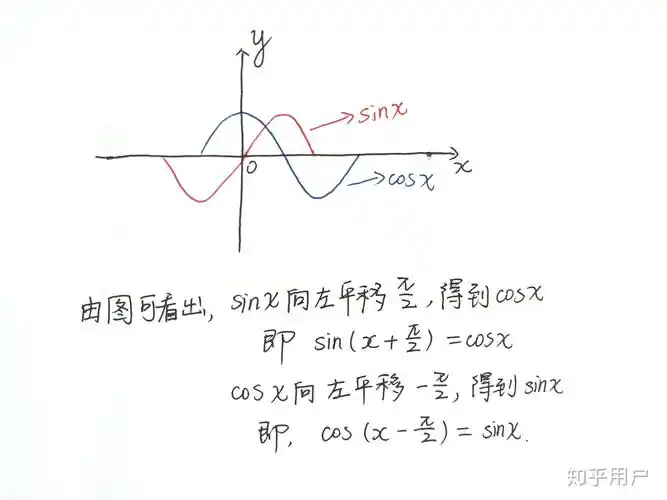 y
sinx
O
x
cosx
由图可看出, sinx向左平移π/2, 得到cosx
即 sin(x+π/2)=cosx
cosx向左平移-π/2, 得到sinx
即, cos(x-π/2)=sinx.
知乎用户